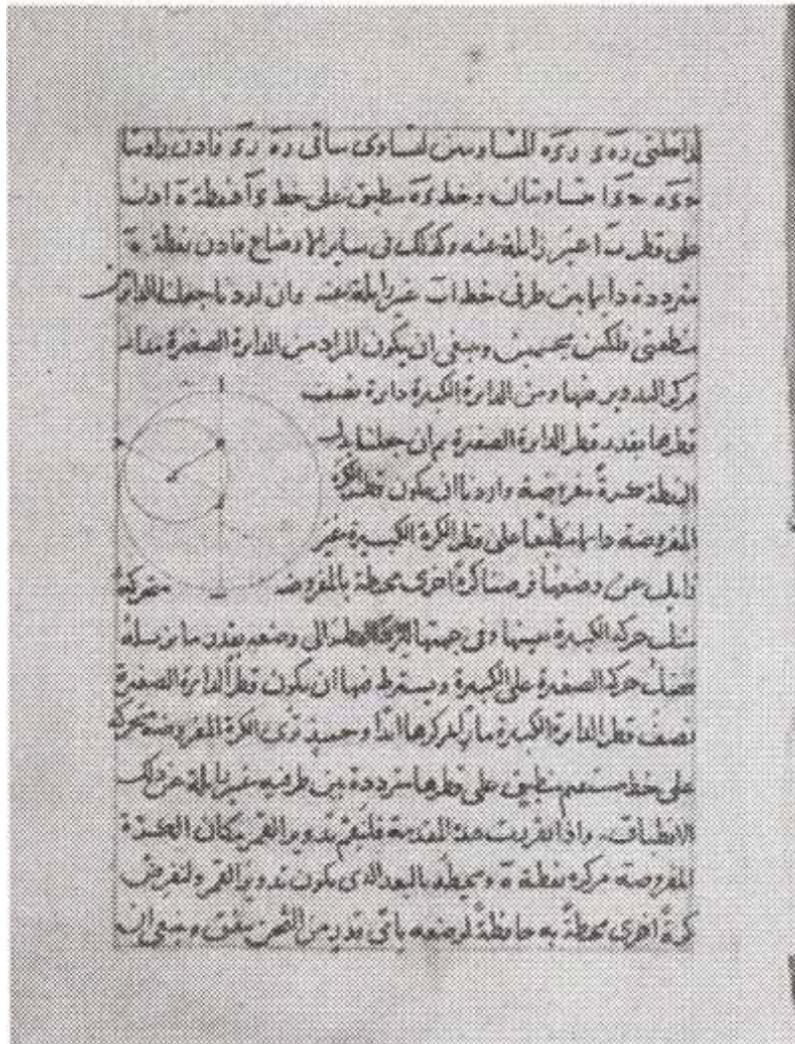 الداخلتى ره ى رى ه المتساويتين لتساوى ساقى ره رى فاذن زاويتا
ى ه حى ا متساويتان وخط ى ه منطبق على خط ى ا فنقطة ه اذن
على قطر ا ب غير زايلة عنه وكذلك فى ساير الاوضاع فاذن نقطة ه
مترددة دايما بين طرفى خط ا ب غير زايلة عنه وان اردنا جعلنا الدائرتين
منطقتى فلكين مجسمين وينبغى ان يكون المراد من الدايرة الصغيرة مدار
مركز التدوير فيها ومن الدايرة الكبيرة دايرة نصف
قطرها بقدر قطر الدايرة الصغيرة ثم ان جعلنا بدل
النقطة كرة مفروضة واردنا ان يكون قطر الكرة
المفروضة دايما منطبقا على قطر الكرة الكبيرة غير
زايل عن وضعها فرضنا كرة اخرى محيطة بالمفروضة متحركة
مثل حركة الكبيرة بعينها وفى جهتها الى وضعه بقدر ما يزيله
فضل حركة الصغيرة على الكبيرة ويشترط فيها ان يكون قطر الدايرة الصغيرة
نصف قطر الدايرة الكبيرة مارا بمركزها ابدا وحينئذ ترى الكرة المفروضة متحركة
على خط مستقيم منطبق على قطرها مترددة بين طرفيه غير زايلة عن ذلك
الانطباق واذا تقررت هذه المقدمة فلنقم تدوير القمر مكان الكرة
المفروضة مركزه نقطة ه ومحيطه بالبعد الذى يكون تدوير القمر ولنفرض
كرة اخرى محيطة به حافظة لوضعه باى قدر من الثخن يتفق وينبغى ان